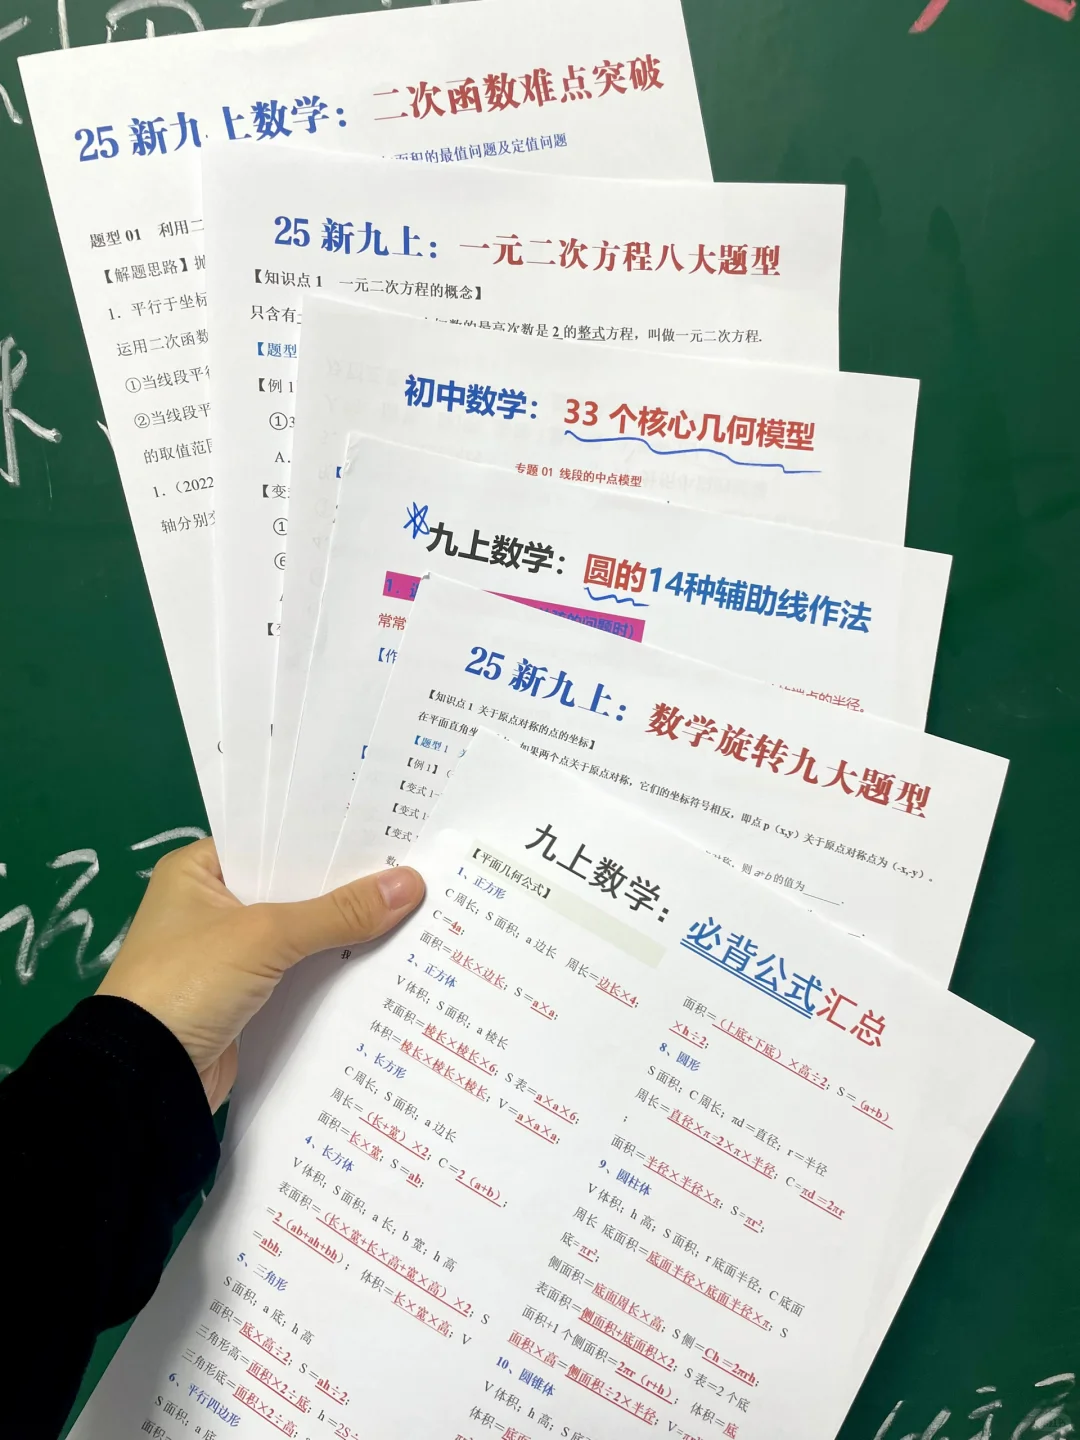 25 新九上数学：二次函数难点突破
面积的最值问题及定值问题
题型 01 利用二
【解题思路】抛
1. 平行于坐标
运用二次函数
①当线段平行
②当线段平
的取值范围
1.（2022
轴分别交
25 新九上：一元二次方程八大题型
【知识点 1 一元二次方程的概念】
只含有一
的最高次数是 2 的整式方程，叫做一元二次方程.
【题型
【例 1
①3
A.
【变
①
⑥
初中数学：33 个核心几何模型
专题 01 线段的中点模型
九上数学：圆的14种辅助线作法
1.
的问题时）
常常
端点的半径。
【作
25 新九上：数学旋转九大题型
【知识点 1 关于原点对称的点的坐标】
在平面直角坐
如果两个点关于原点对称，它们的坐标符号相反，即点 p（x,y）关于原点对称点为（-x,-y）。
【题型 1 关
【例 1】（
【变式 1-
【变式
则 a+b 的值为______.
数：
九上数学：必背公式汇总
【平面几何公式】
1、正方形
C 周长；S 面积；a 边长 周长＝边长×4；
C＝4a；
面积＝边长×边长；S＝a×a；
2、正方体
V 体积；S 面积；a 棱长
表面积＝棱长×棱长×6；S 表＝a×a×6；
体积＝棱长×棱长×棱长；V＝a×a×a；
3、长方形
C 周长；S 面积；a 边长
周长＝（长+宽）×2；C＝2（a+b）；
面积＝长×宽；S＝ab；
4、长方体
V 体积；S 面积；a 长；b 宽；h 高
表面积＝（长×宽+长×高+宽×高）×2；S
＝2（ab+ah+bh）；体积＝长×宽×高；V
＝abh；
5、三角形
S 面积；a 底；h 高
面积＝底×高÷2；S＝ah÷2；
三角形高＝面积×2÷底；h＝2S÷
三角形底＝面积×2÷高；
6、平行四边形
S 面积；a 底
面积＝
面积＝（上底+下底）×高÷2；S＝（a+b）
×h÷2；
8、圆形
S 面积；C 周长；πd＝直径；r＝半径
周长＝直径×π=2×π×半径；C＝πd＝2πr
；
面积＝半径×半径×π；S＝πr²；
9、圆柱体
V 体积；h 高；S 面积；r 底面半径；C 底面
周长 底面积＝底面半径×底面半径×π；S
底＝πr²；
侧面积＝底面周长×高；S 侧＝Ch＝2πrh；
表面积＝侧面积+底面积×2；S 表＝2 个底
面积+1 个侧面积＝2πr（r+h）；体积＝底
面积×高＝侧面积÷2×半径；V＝
10、圆锥体
V 体积；h 高；S 底
体积＝底面